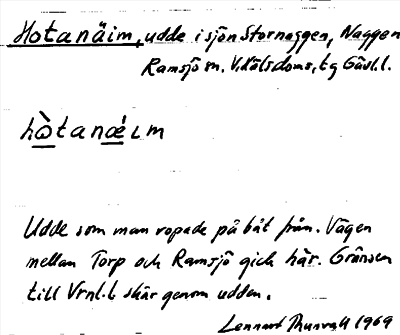 Hotanäim, udde i sjön Stornaggen, Naggen
Ramsjö sn. V. Hälsdoms. tg Gävl.l.
hòtanǽım
Udde som man ropade på båt från. Vägen
mellan Torp och Ramsjö gick här. Gränsen
till Vrnl.l skär genom udden.
Lennart Thunvall 1969